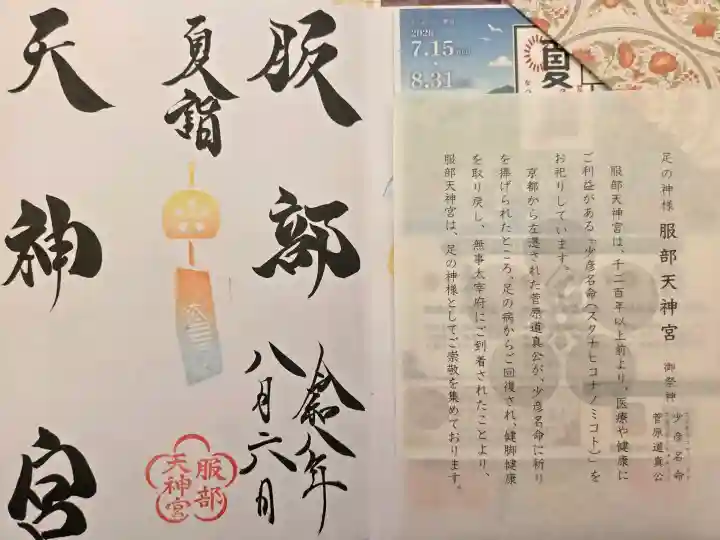 服部
夏詣
天神宮
令和八年
八月六日
服部
天神宮
2026
7.15
8.31
夏
足の神様 服部天神宮 御祭神 少彦名命
菅原道真公
服部天神宮は、千二百年以上前より、医療や健康に
ご利益がある「少彦名命(スクナヒコナノミコト)」を
お祀りしています。
京都から左遷された菅原道真公が、少彦名命に祈り
を捧げられたところ、足の病からご回復され、健脚健康
を取り戻し、無事太宰府にご到着されたことより、
服部天神宮は、足の神様としてご崇敬を集めております。